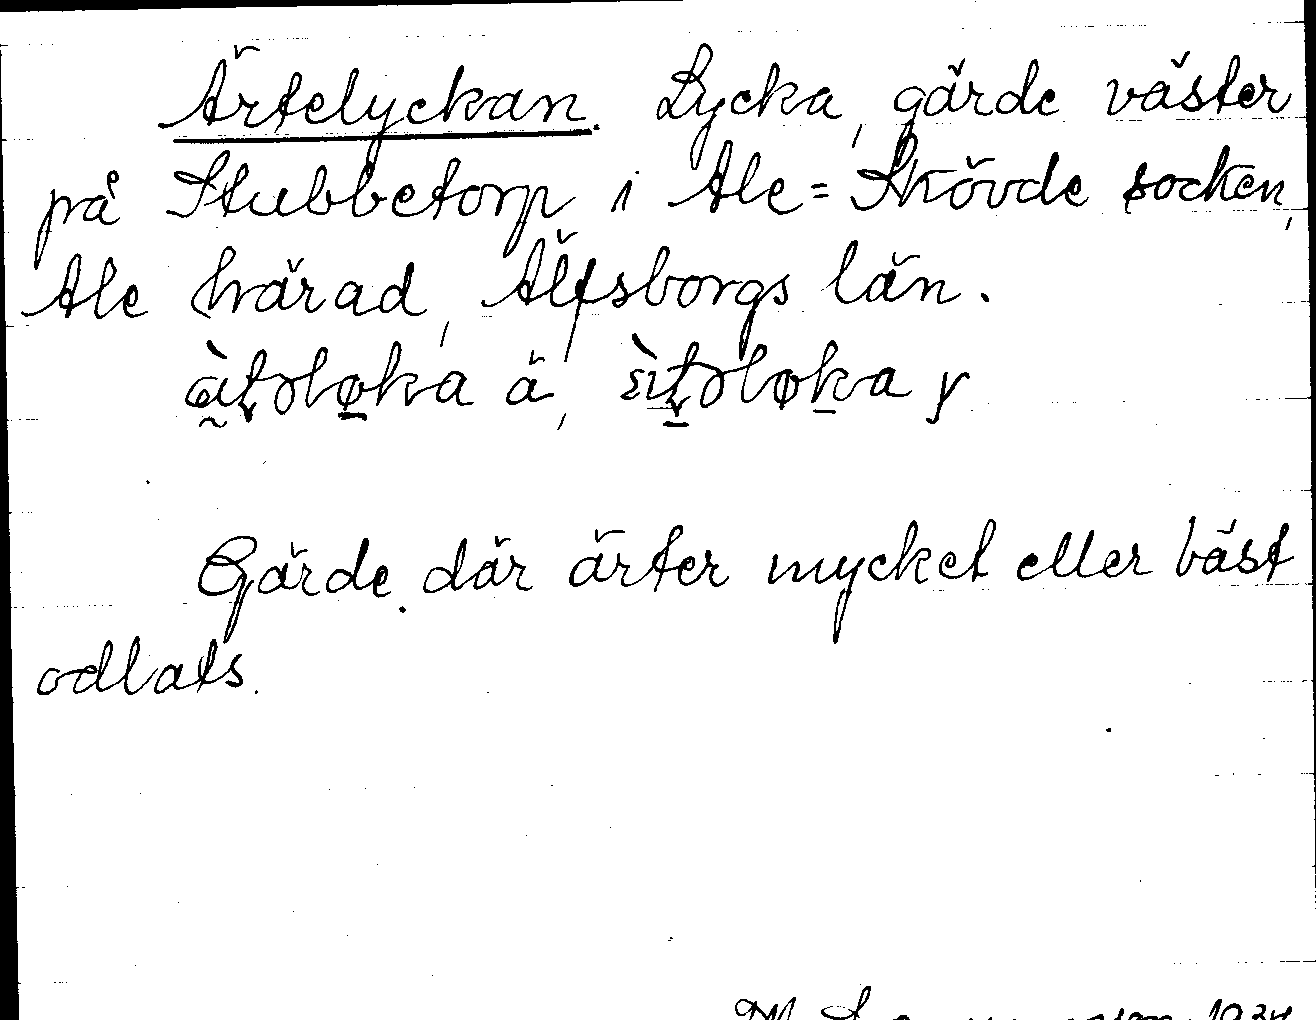 Ärtelyckan. Lycka, gärde väster
på Stubbetorp i Ale=Skövde socken,
Ale härad, Älfsborgs län.
ä, y
Gärde där ärter mycket eller bäst
odlats.